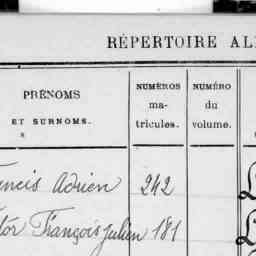 RÉPERTOIRE AL
PRÉNOMS
ET SURNOMS.
NUMÉROS
ma-
tricules.
NUMÉRO
du
volume.
Adrien 242
François Julien 181